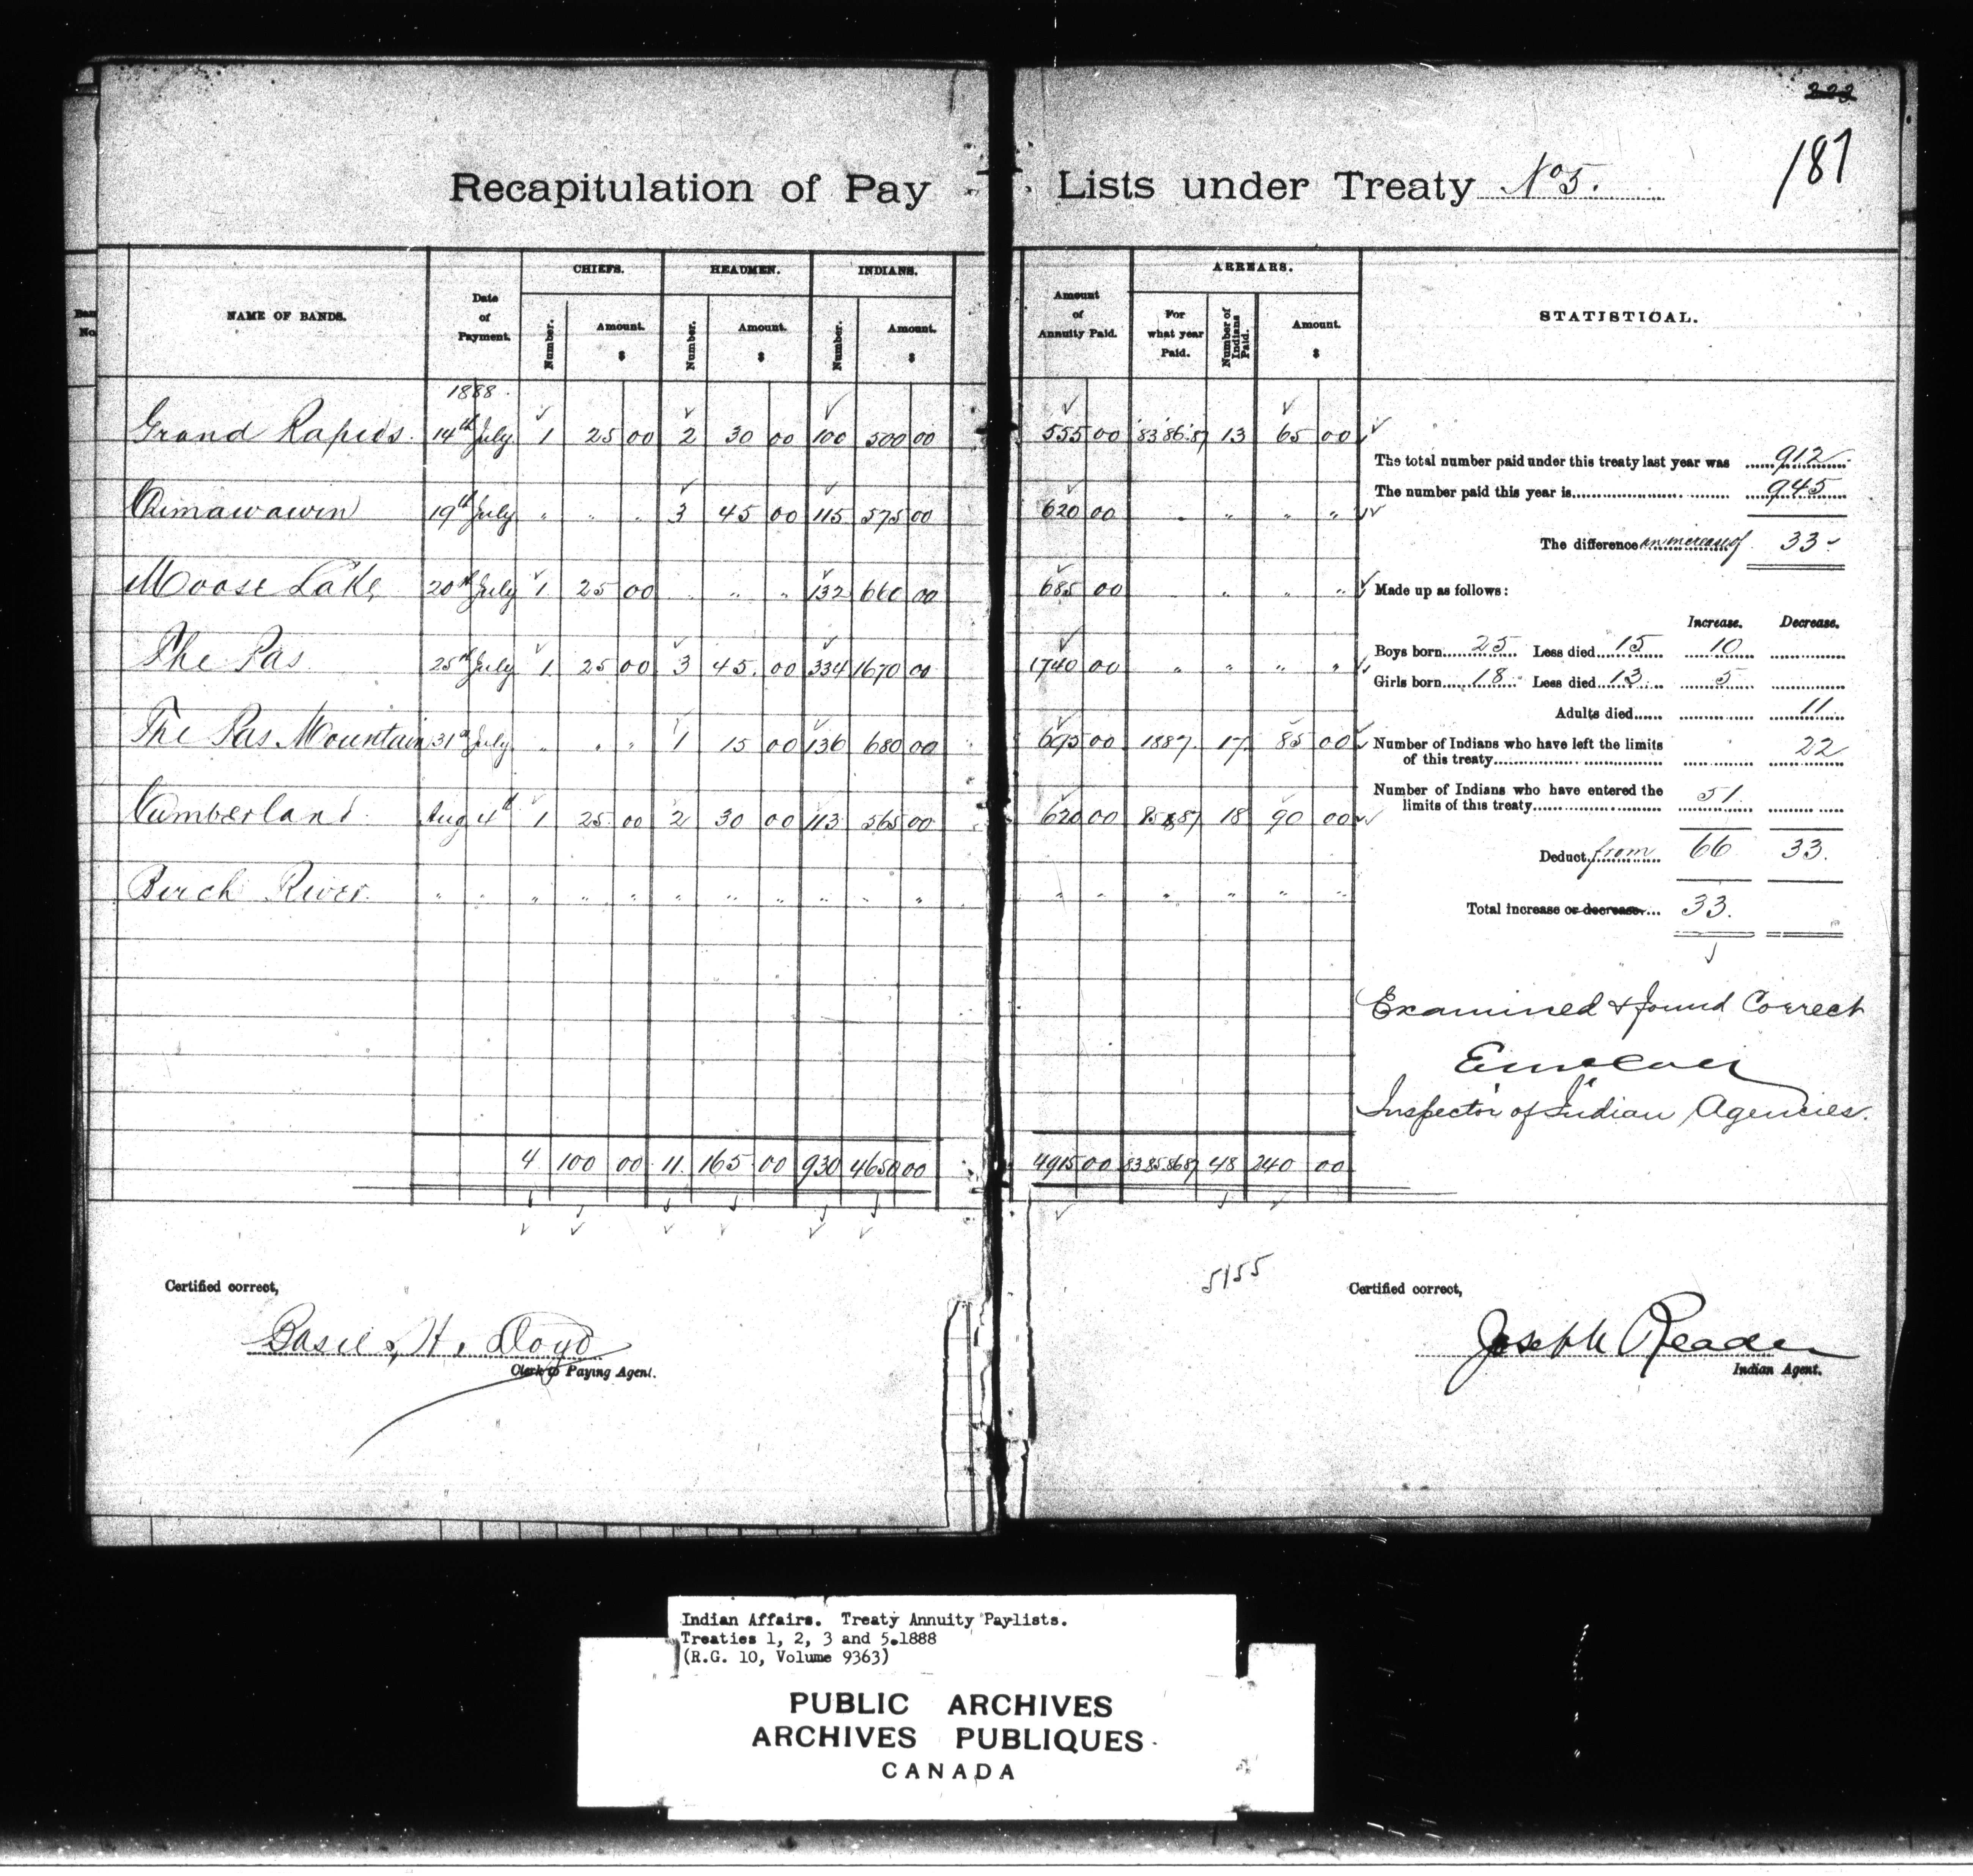 222
187
Recapitulation of Pay Lists under Treaty No 5.
Band No
NAME OF BANDS.
Date of Payment.
CHIEFS. Number. Amount. $
HEADMEN. Number. Amount. $
INDIANS. Number. Amount. $
Amount of Annuity Paid.
ARREARS. For what year Paid. Number of Indians Paid. Amount. $
STATISTICAL.
1888.
Grand Rapids. 14th July 1 25 00 2 30 00 100 500 00 555 00 '83 '86 '87 13 65 00
Chimawawin 19th July " " " 3 45 00 115 575 00 620 00 " " " "
Moose Lake 20th July 1 25 00 " " " 132 660 00 685 00 " " " "
The Pas 25th July 1 25 00 3 45 00 334 1670 00 1740 00 " " " "
The Pas Mountain 31st July " " " 1 15 00 136 680 00 695 00 1887 17 85 00
Cumberland Aug 4th 1 25 00 2 30 00 113 565 00 620 00 85 & 87 18 90 00
Birch River. " " " " " " " " " " " " " " " "
4 100 00 11 165 00 930 4650 00 4915 00 83 85 86 87 48 240 00
The total number paid under this treaty last year was 912
The number paid this year is 945
The difference an increase of 33
Made up as follows:
Increase. Decrease.
Boys born 25 Less died 15 10
Girls born 18 Less died 13 5
Adults died 11
Number of Indians who have left the limits of this treaty 22
Number of Indians who have entered the limits of this treaty 51
Deduct from 66 33.
Total increase or decrease 33.
Examined & found Correct
Inspector of Indian Agencies.
5155
Certified correct,
Basil H.
Clerk to Paying Agent.
Certified correct,
Joseph Reader
Indian Agent.
Indian Affairs. Treaty Annuity Paylists.
Treaties 1, 2, 3 and 5.1888
(R.G. 10, Volume 9363)
PUBLIC ARCHIVES
ARCHIVES PUBLIQUES
CANADA